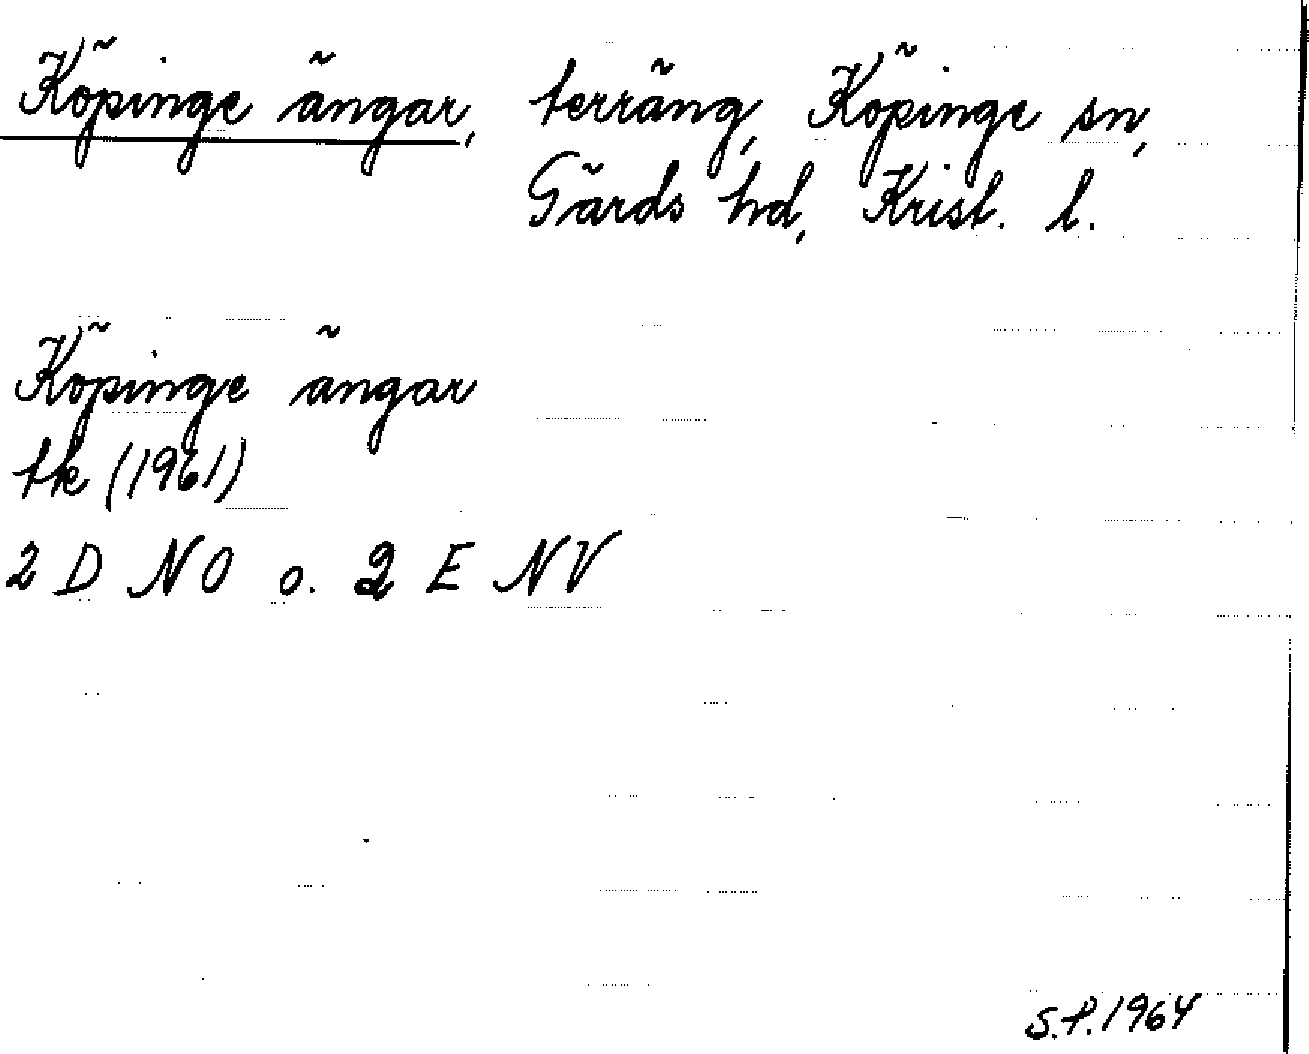 Köpinge ängar, terräng, Köpinge sn,
Gärds hd, Krist. l.
Köpinge ängar
tk (1961)
2 D NO o. 2 E NV
S.P. 1964